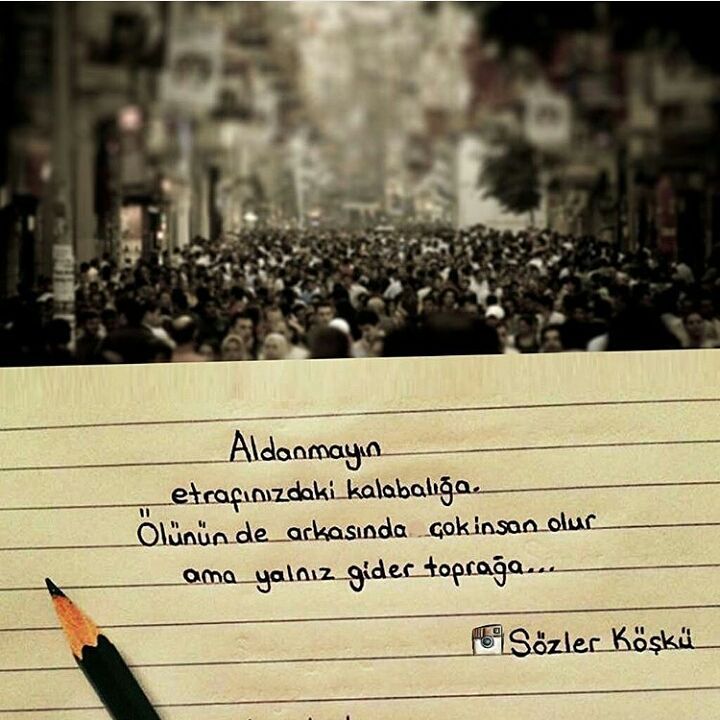 Aldanmayın
etrafınızdaki kalabalığa.
Ölünün de arkasında çok insan olur
ama yalnız gider toprağa...
Sözler Köşkü